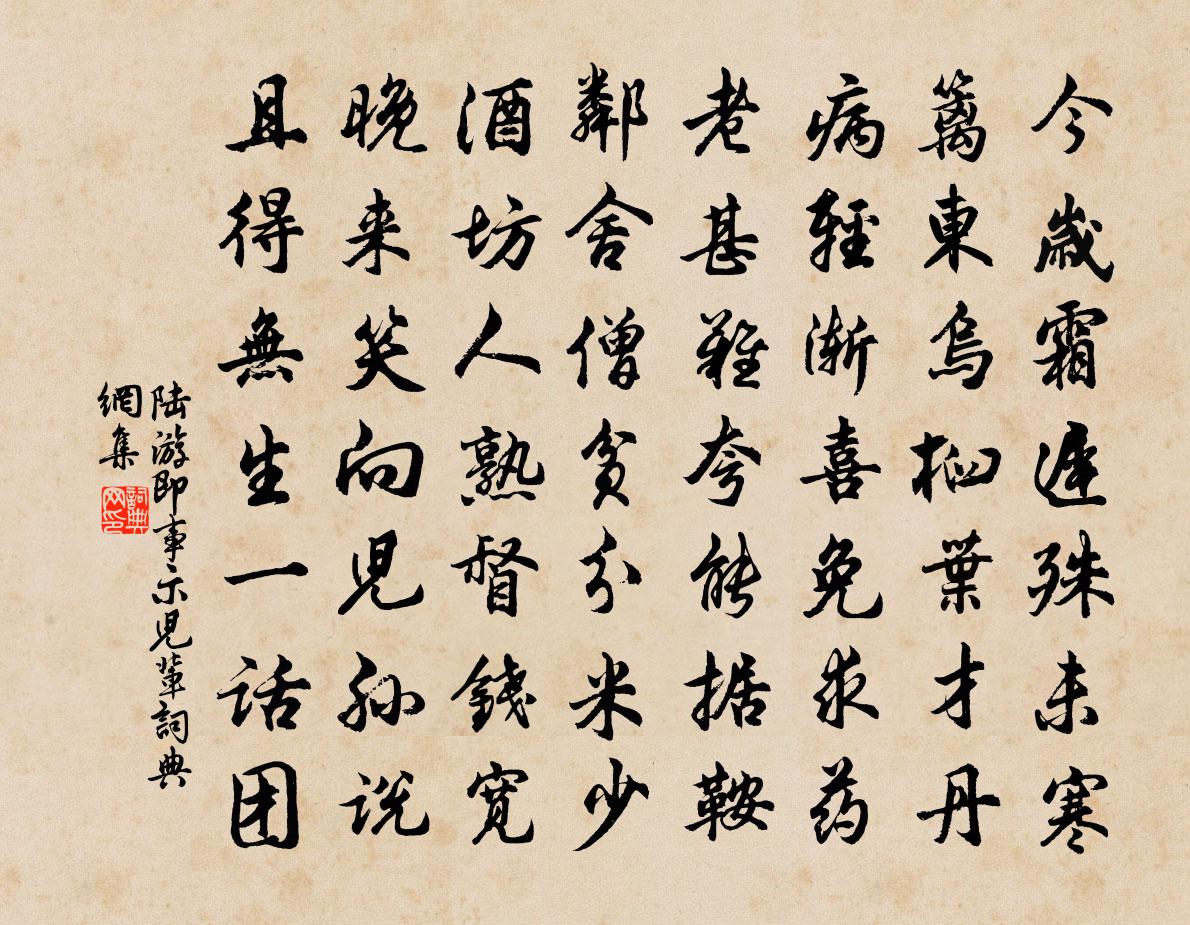 今歲霜遲殊未寒
籬東烏桕葉才丹
病輕漸喜免求药
老甚難夸能据鞍
鄰舍僧貧分米少
酒坊人熟督錢寬
晚来笑向児孙説
且得無生一话团
陆游即事示児輩詞典
網集
詞典
网印